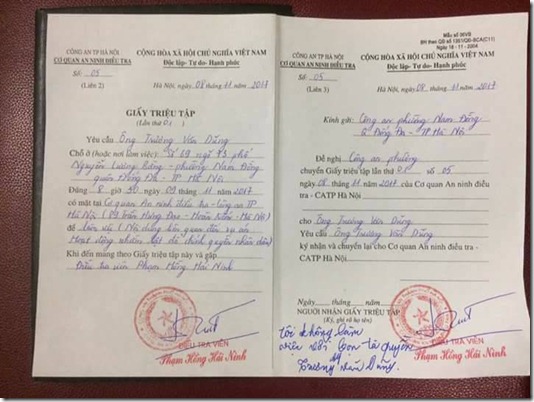 CÔNG AN TP HÀ NỘI
CƠ QUAN AN NINH ĐIỀU TRA
Số: 05
(Liên 2)
CỘNG HÒA XÃ HỘI CHỦ NGHĨA VIỆT NAM
Độc lập- Tự do- Hạnh phúc
Hà Nội, ngày 08 tháng 11 năm 2017
GIẤY TRIỆU TẬP
(Lần thứ 01)
Yêu cầu Ông Trương Văn Dũng
Chỗ ở (hoặc nơi làm việc): Số 69 ngõ 73 phố
Nguyễn Lương Bằng - phường Nam Đồng
quận Đống Đa - TP Hà Nội
Đúng 8 giờ 30 ngày 09 tháng 11 năm 2017
có mặt tại Cơ quan An ninh điều tra - Công an TP
Hà Nội (89 Trần Hưng Đạo - Hoàn Kiếm - Hà Nội)
để làm việc (Nội dung liên quan đến vụ án
Hoạt động nhằm lật đổ chính quyền nhân dân)
Khi đến mang theo Giấy triệu tập này và gặp
Điều tra viên Phạm Hồng Hải Ninh
ĐIỀU TRA VIÊN
Phạm Hồng Hải Ninh
Mẫu số 06VB
BH theo QĐ số 1351/QĐ-BCA(C11)
Ngày 18 - 11 - 2004
CÔNG AN TP HÀ NỘI
CƠ QUAN AN NINH ĐIỀU TRA
Số: 05
(Liên 3)
CỘNG HÒA XÃ HỘI CHỦ NGHĨA VIỆT NAM
Độc lập- Tự do- Hạnh phúc
Hà Nội, ngày 08 tháng 11 năm 2017
Kính gửi: Công an phường Nam Đồng
Q Đống Đa - TP Hà Nội
Đề nghị Công an phường
chuyển Giấy triệu tập lần thứ 01 số 05
ngày 08 tháng 11 năm 2017 của Cơ quan An ninh điều
tra - CATP Hà Nội
cho Ông Trương Văn Dũng
Yêu cầu Ông Trương Văn Dũng
ký nhận và chuyển lại cho Cơ quan An ninh điều tra -
CATP Hà Nội.
Ngày tháng năm
NGƯỜI NHẬN GIẤY TRIỆU TẬP
(Ký, ghi rõ họ tên)
Tôi không làm
việc với bọn tà quyền
Trương Văn Dũng
ĐIỀU TRA VIÊN
Phạm Hồng Hải Ninh